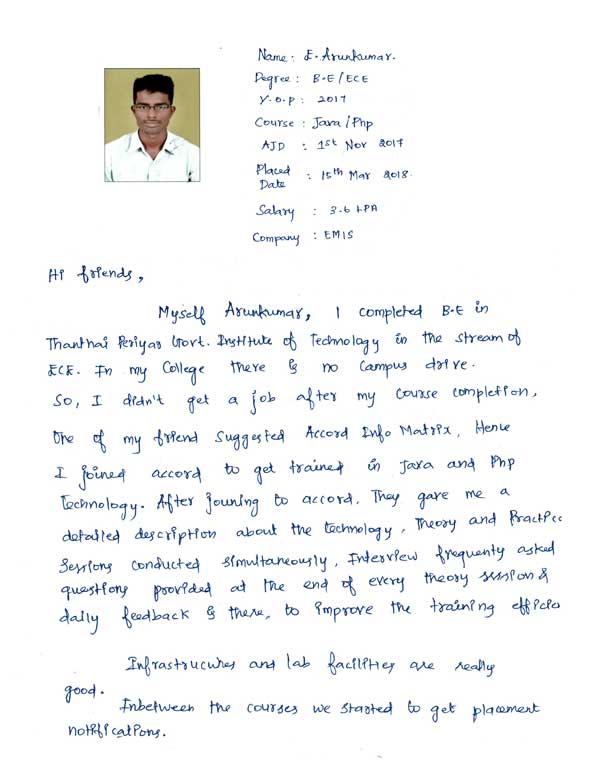 Name : E. Arunkumar.
Degree : B.E / ECE
Y.O.P : 2017
Course : Java / Php
AJD : 1st Nov 2017
Placed Date : 15th Mar 2018.
Salary : 3.6 LPA
Company : EMIS
Hi friends,
Myself Arunkumar, I completed B.E in
Thanthai Periyar Govt. Institute of Technology in the stream of
ECE. In my College there is no campus drive.
So, I didn't get a job after my course completion,
One of my friend suggested Accord Info Matrix, Hence
I joined accord to get trained in Java and Php
Technology. After jouning to accord, They gave me a
detailed description about the technology, Theory and Practice
Sessions conducted simultaneously, Interview frequenty asked
questions provided at the end of every theory session &
daily feedback is there, to improve the training efficie
Infrastrucures and lab facilities are really
good.
Inbetween the courses we started to get placement
notifications.